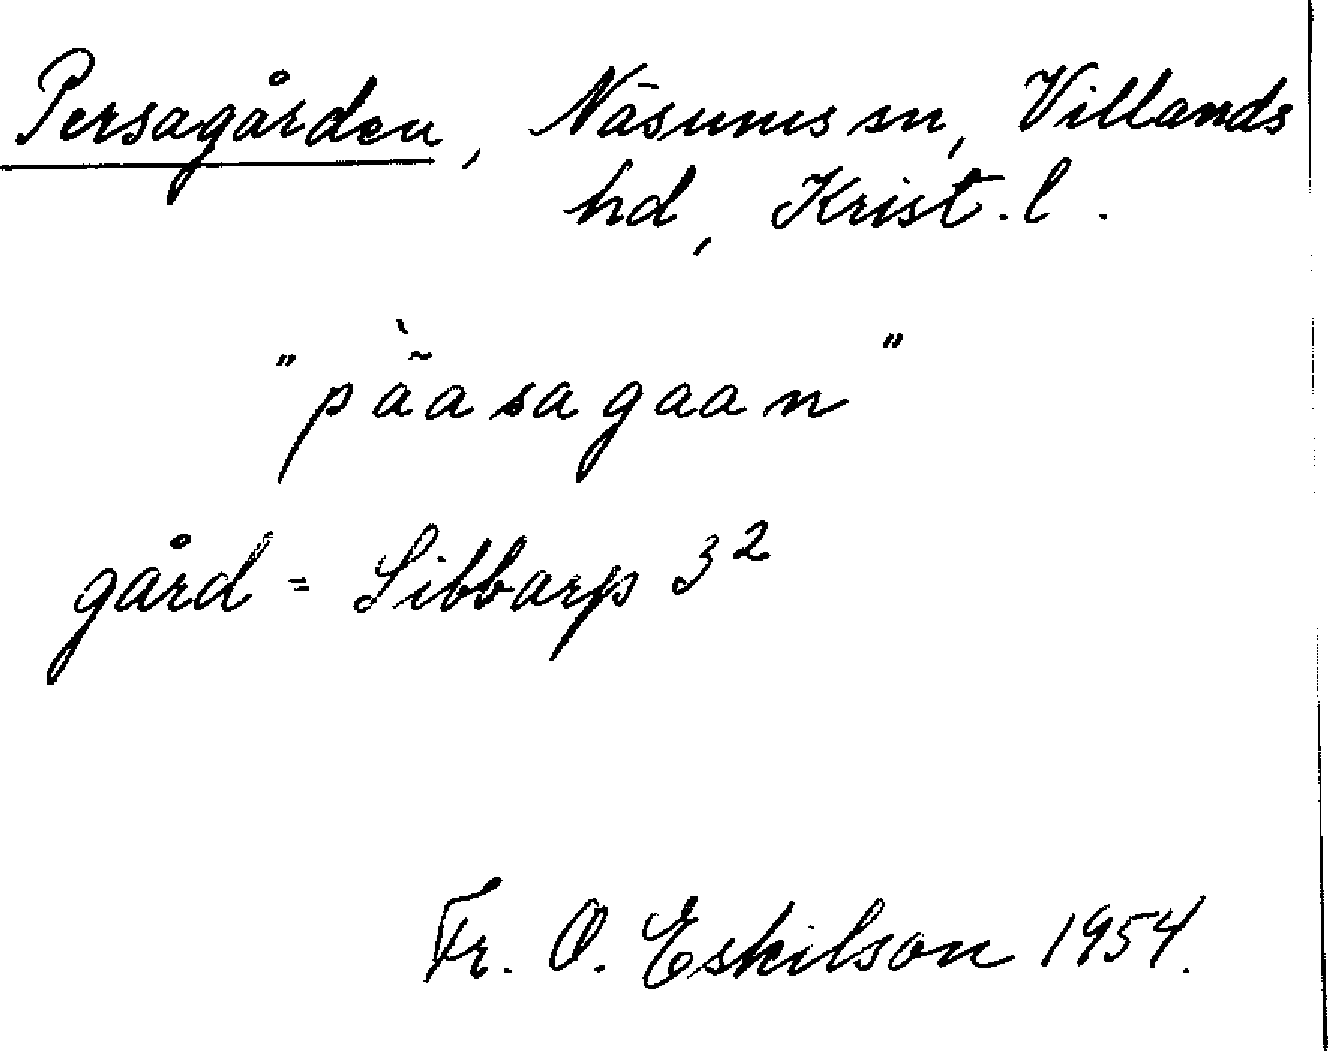 Persagården, Näsums sn, Villands
hd, Krist. l.
"pä̀asagaan"
gård = Sibbarp 3²
Fr. O. Eskilson 1954.